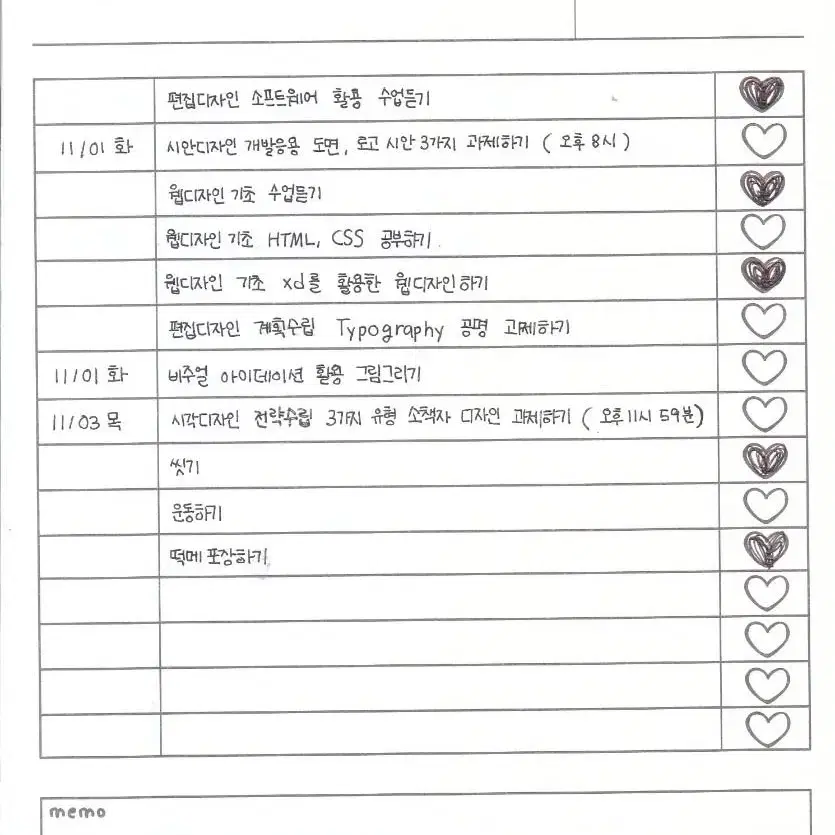 편집디자인 소프트웨어 활용 수업듣기
11/01 화 시안디자인 개발응용 도면, 로고 시안 3가지 과제하기 ( 오후 8시 )
웹디자인 기초 수업듣기
웹디자인 기초 HTML, CSS 공부하기
웹디자인 기초 xd를 활용한 웹디자인하기
편집디자인 계획수립 Typography 공명 과제하기
11/01 화 비주얼 아이데이션 활용 그림그리기
11/03 목 시각디자인 전략수립 3가지 유형 소책자 디자인 과제하기 ( 오후 11시 59분)
씻기
운동하기
떡메 포장하기
memo